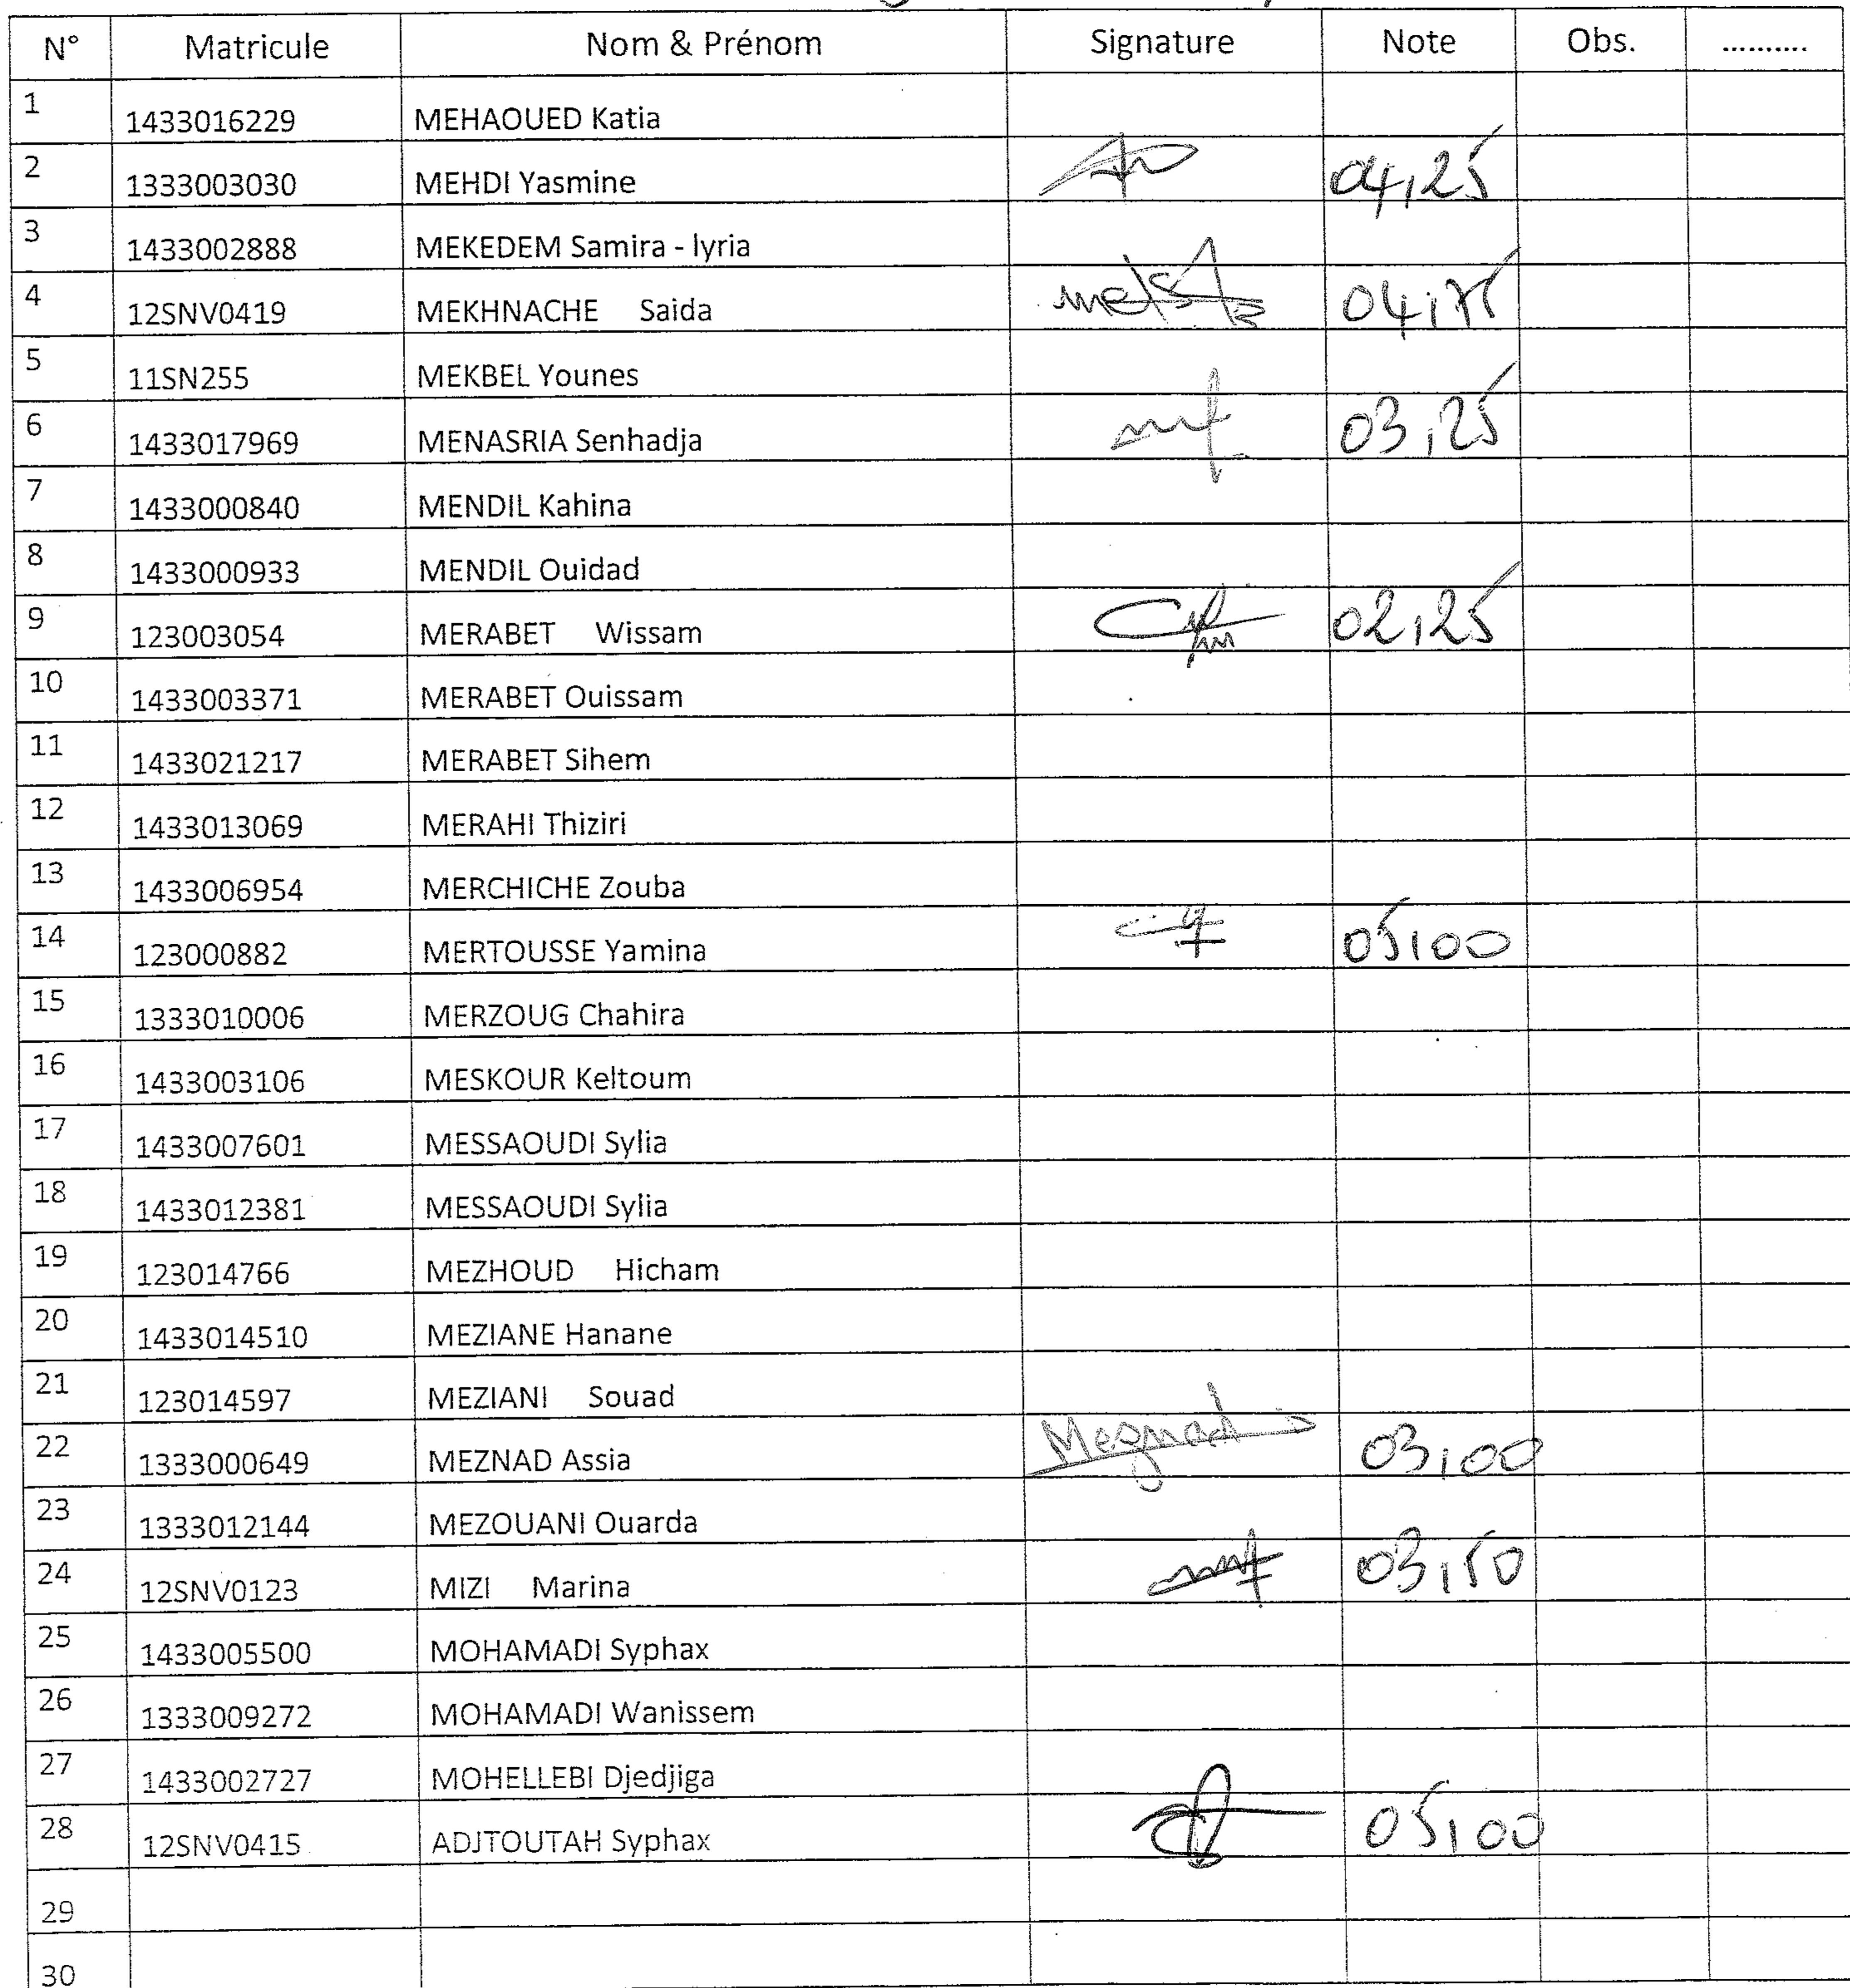 N° Matricule Nom & Prénom Signature Note Obs. ..........
1 1433016229 MEHAOUED Katia
2 1333003030 MEHDI Yasmine 04,25
3 1433002888 MEKEDEM Samira - lyria
4 12SNV0419 MEKHNACHE Saida 04,75
5 11SN255 MEKBEL Younes
6 1433017969 MENASRIA Senhadja 03,25
7 1433000840 MENDIL Kahina
8 1433000933 MENDIL Ouidad
9 123003054 MERABET Wissam 02,25
10 1433003371 MERABET Ouissam
11 1433021217 MERABET Sihem
12 1433013069 MERAHI Thiziri
13 1433006954 MERCHICHE Zouba
14 123000882 MERTOUSSE Yamina 05,00
15 1333010006 MERZOUG Chahira
16 1433003106 MESKOUR Keltoum
17 1433007601 MESSAOUDI Sylia
18 1433012381 MESSAOUDI Sylia
19 123014766 MEZHOUD Hicham
20 1433014510 MEZIANE Hanane
21 123014597 MEZIANI Souad
22 1333000649 MEZNAD Assia Meznad 03,00
23 1333012144 MEZOUANI Ouarda
24 12SNV0123 MIZI Marina 03,50
25 1433005500 MOHAMADI Syphax
26 1333009272 MOHAMADI Wanissem
27 1433002727 MOHELLEBI Djedjiga
28 12SNV0415 ADJTOUTAH Syphax 05,00
29
30